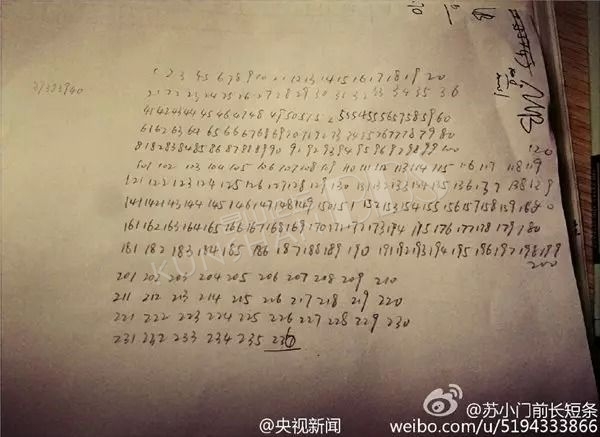 1 2 3 4 5 6 7 8 9 10 11 12 13 14 15 16 17 18 19 20
21 22 23 24 25 26 27 28 29 30 31 32 33 34 35 36
41 42 43 44 45 46 47 48 49 50 51 52 53 54 55 56 57 58 59 60
61 62 63 64 65 66 67 68 69 70 71 72 73 74 75 76 77 78 79 80
81 82 83 84 85 86 87 88 89 90 91 92 93 94 95 96 97 98 99 100
120
101 102 103 104 105 106 107 108 109 110 111 112 113 114 115 116 117 118 119
121 122 123 124 125 126 127 128 129 130 131 132 133 134 135 136 137 138 139
141 142 143 144 145 146 147 148 149 150 151 152 153 154 155 156 157 158 159 160
161 162 163 164 165 166 167 168 169 170 171 172 173 174 175 176 177 178 179 180
181 182 183 184 185 186 187 188 189 190 191 192 193 194 195 196 197 198 199
200
201 202 203 204 205 206 207 208 209 210
211 212 213 214 215 216 217 218 219 220
221 222 223 224 225 226 227 228 229 230
231 232 233 234 235 236
@央视新闻
@苏小门前长短条
weibo.com/u/5194333866